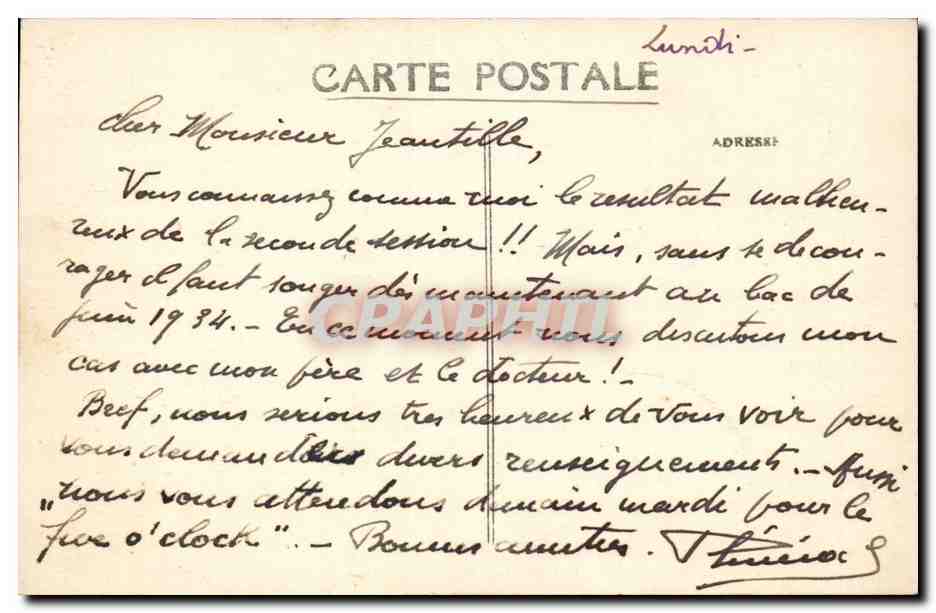 Lundi-
CARTE POSTALE
ADRESSE
Cher Monsieur Jeantille,
Vous connaissez comme moi le resultat malheu-
reux de la seconde session!! Mais, sans se decou-
rager il faut songer dès maintenant au bac de
juin 1934.- En ce moment nous discutons mon
CPAPHIL
cas avec mon père et le docteur!-
Bref, nous serions tres heureux de vous voir pour
vous demander divers renseignements.- Aussi
"nous vous attendons demain mardi pour le
five o'clock".- Bonnes amities.